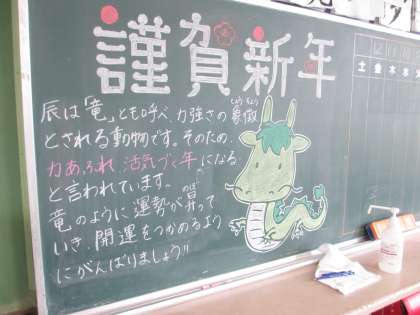 謹賀新年
辰は「竜」とも呼べ、力強さの象徴
しょうちょう
とされる動物です。そのため、
力あふれ、活気づく年になる
と言われています。
のぼ
竜のように運勢が昇って
いき、開運をつかめるよう
にがんばりましょう!!
土
金
木